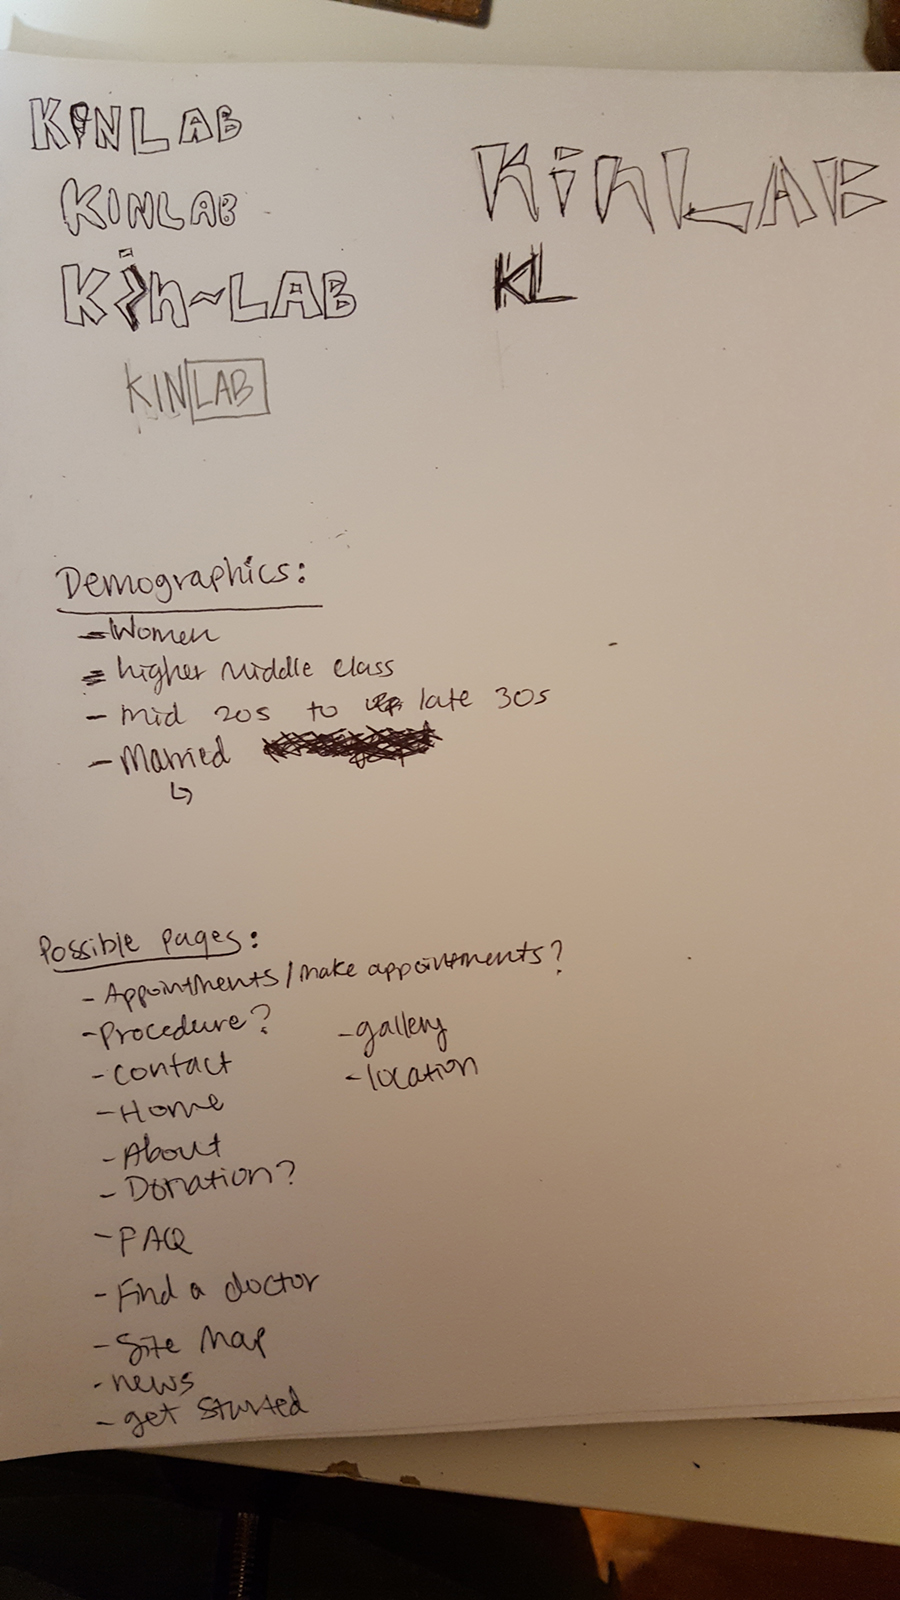 KINLAB
KINLAB
Kin~LAB
KINLAB
KinLAB
KL
Demographics:
- Women
- higher middle class
- mid 20s to late 30s
- Married
↳
Possible pages:
- Appointments/make appointments?
- Procedure?
- contact
- Home
- About
- Donation?
- FAQ
- Find a doctor
- Site Map
- news
- get started
- gallery
- location